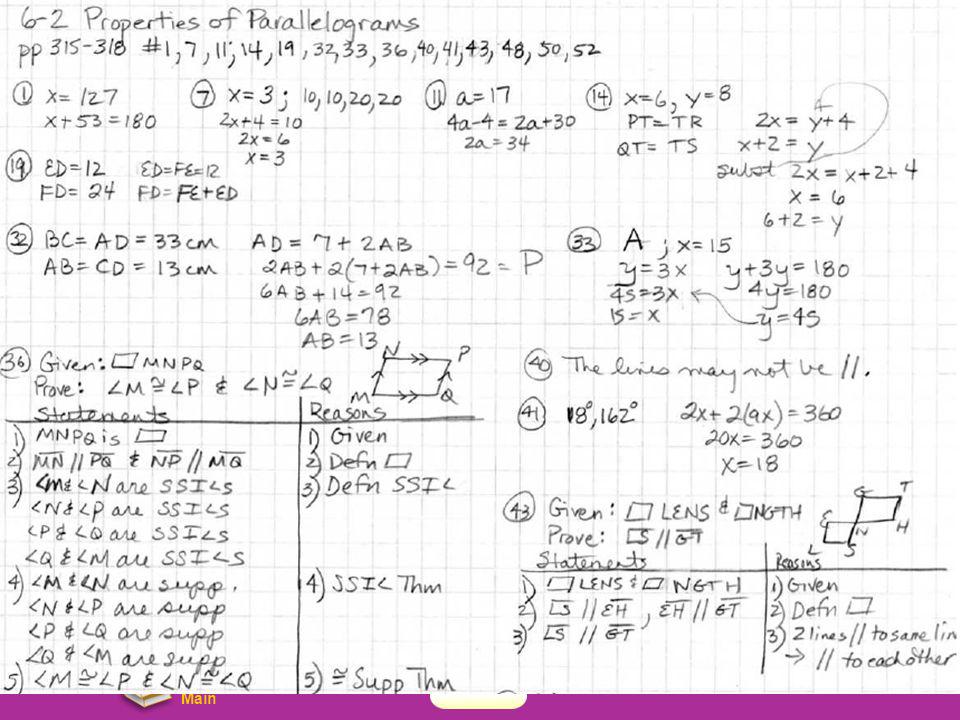 6-2 Properties of Parallelograms
pp 315-318 #1, 7, 11, 14, 19, 32, 33, 36, 40, 41, 43, 48, 50, 52
① x = 127
x + 53 = 180
⑦ x = 3 ; 10, 10, 20, 20
2x + 4 = 10
2x = 6
x = 3
⑪ a = 17
4a - 4 = 2a + 30
2a = 34
⑭ x = 6, y = 8
PT = TR
QT = TS
2x = y + 4
x + 2 = y
subst 2x = x + 2 + 4
x = 6
6 + 2 = y
⑲ ED = 12 ED = FE = 12
FD = 24 FD = FE + ED
㉜ BC = AD = 33 cm AD = 7 + 2AB
AB = CD = 13 cm 2AB + 2(7 + 2AB) = 92 = P
6AB + 14 = 92
6AB = 78
AB = 13
㉝ A ; x = 15
y = 3x y + 3y = 180
45 = 3x 4y = 180
15 = x y = 45
㊱ Given: ▱ MNPQ
Prove: ∠M ≅ ∠P & ∠N ≅ ∠Q
N P
M Q
Statements Reasons
1) MNPQ is ▱ 1) Given
2) MN // PQ & NP // MQ 2) Defn ▱
3) ∠M & ∠N are SSI∠S 3) Defn SSI∠
∠N & ∠P are SSI∠S
∠P & ∠Q are SSI∠S
∠Q & ∠M are SSI∠S
4) ∠M & ∠N are supp. 4) SSI∠ Thm
∠N & ∠P are supp
∠P & ∠Q are supp
∠Q & ∠M are supp
5) ∠M ≅ ∠P & ∠N ≅ ∠Q 5) ≅ Supp Thm
㊵ The lines may not be //.
㊶ 18°, 162° 2x + 2(9x) = 360
20x = 360
x = 18
㊸ Given: ▱ LENS & ▱ NGTH
Prove: LS // GT
G T
E N H
L S
Statements Reasons
1) ▱ LENS & ▱ NGTH 1) Given
2) LS // EH, EH // GT 2) Defn ▱
3) LS // GT 3) 2 lines // to same lin
→ // to each other
Main